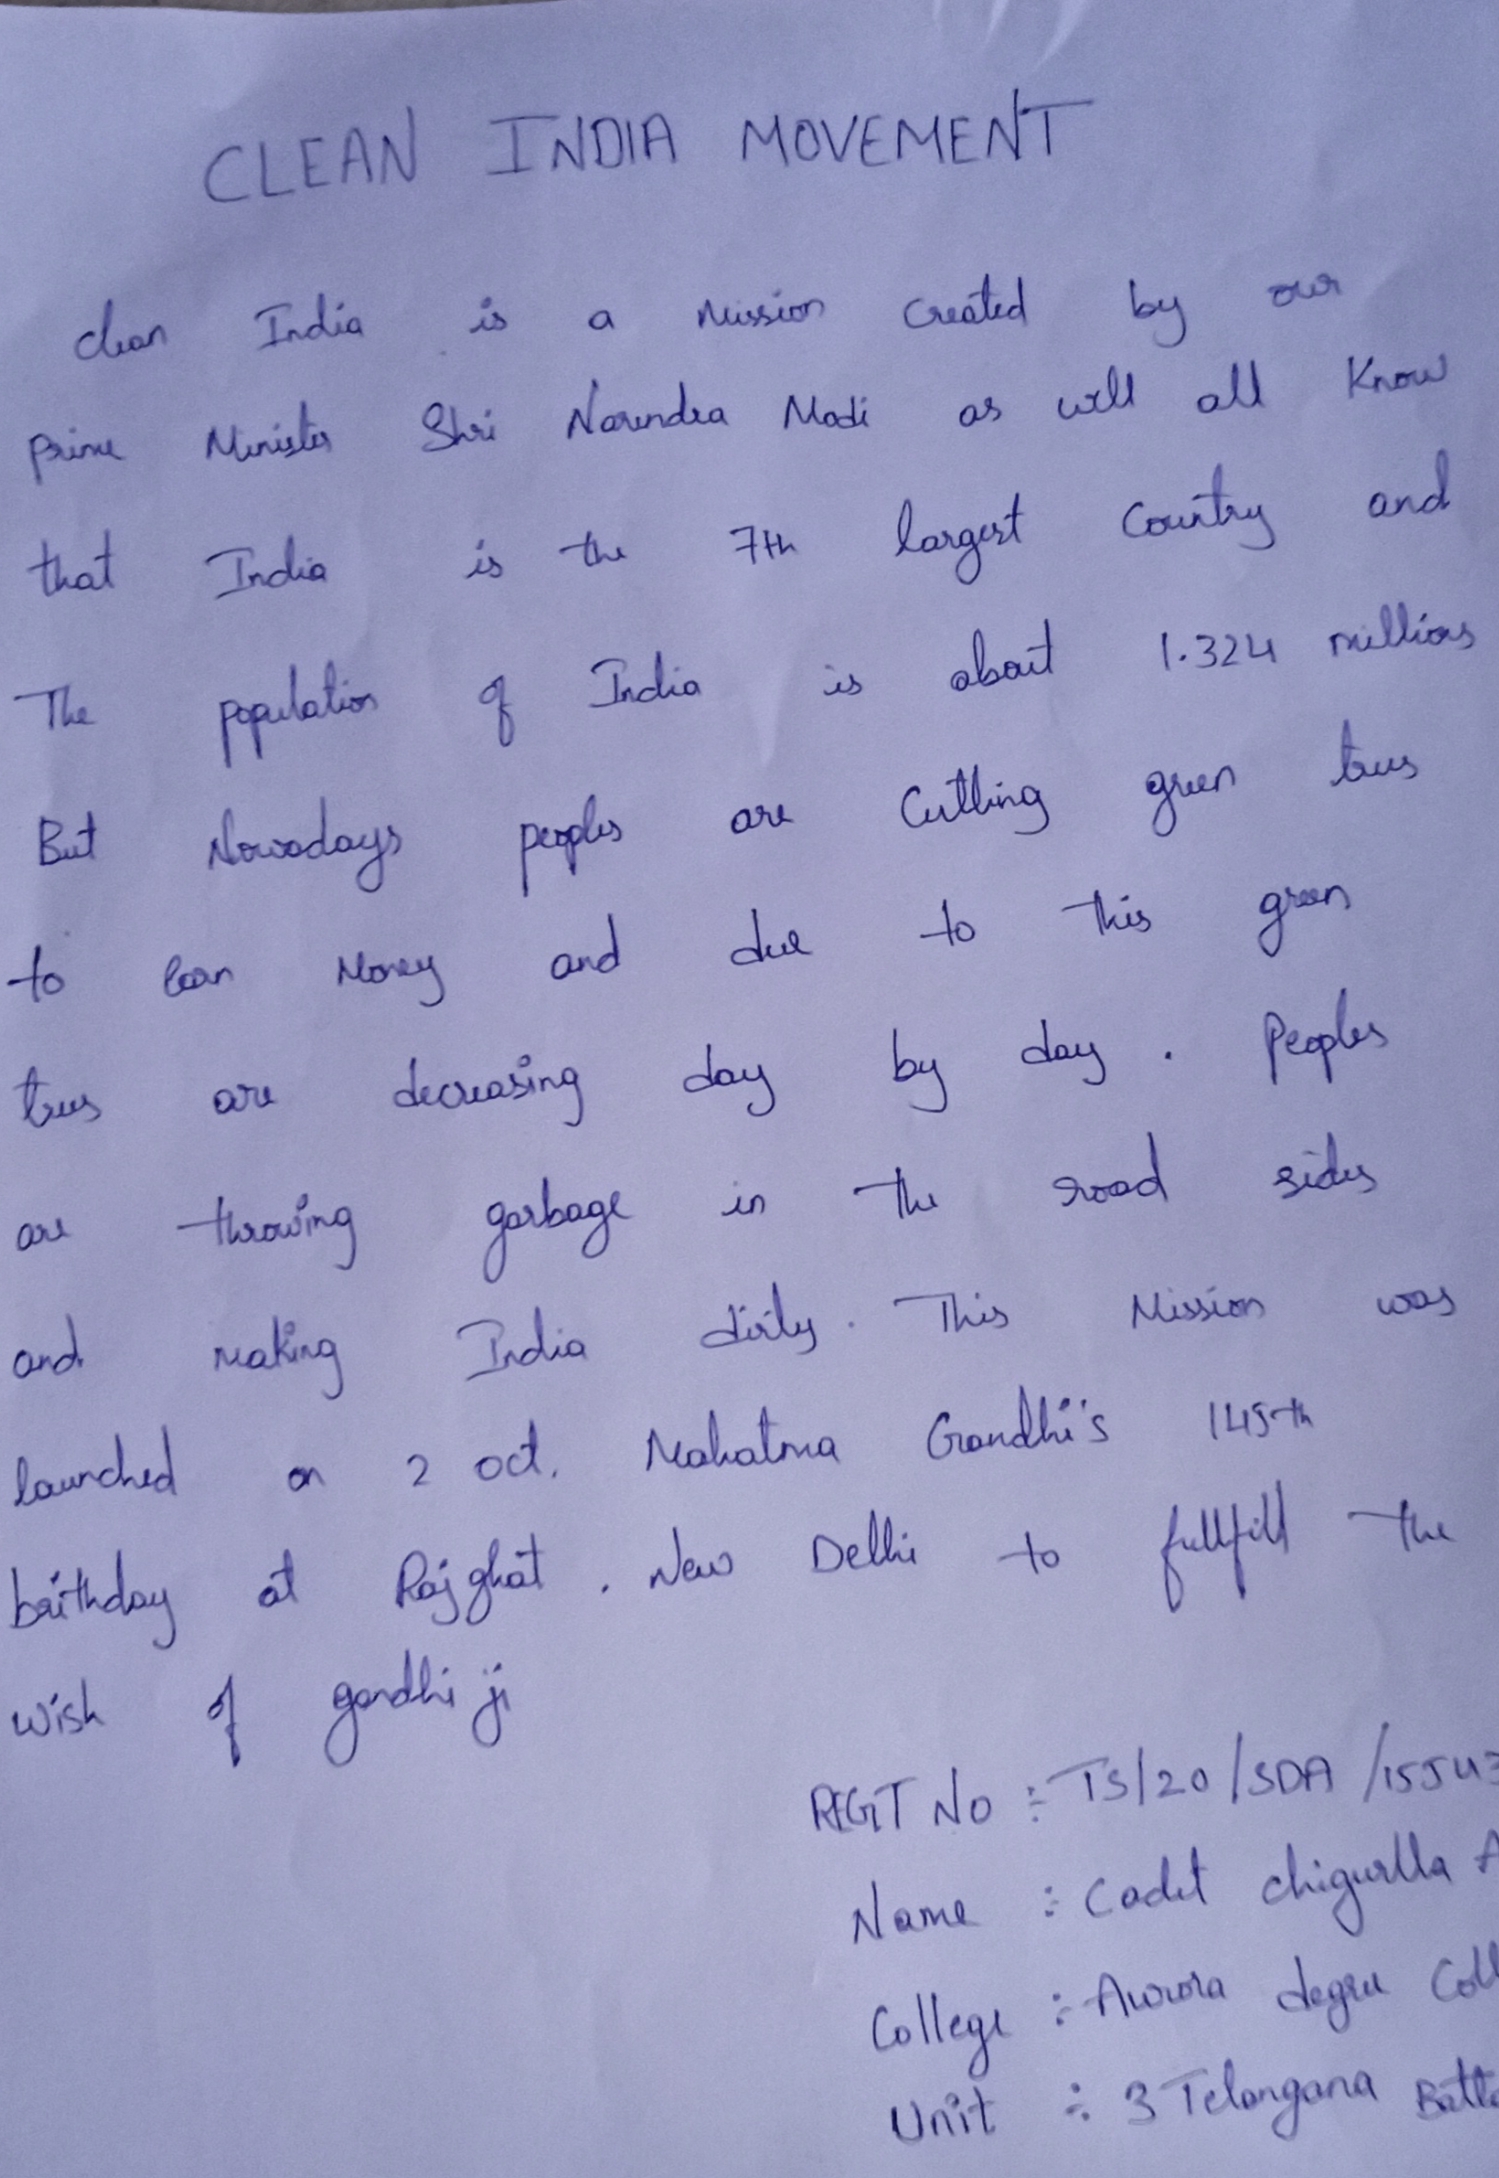 CLEAN INDIA MOVEMENT
clean India is a Mission Created by our
prime Minister Shri Narendra Modi as well all Know
that India is the 7th largest Country and
The population of India is about 1.324 millions
But Nowadays peoples are Cutting green trees
to earn Money and due to this green
trees are decreasing day by day. Peoples
are throwing garbage in the road sides
and making India dirty. This Mission was
launched on 2 oct. Mahatma Gandhi's 145th
birthday at Rajghat. New Delhi to fullfill the
wish of gandhi ji
REGT No : TS/20/SDA/
Name : Cadet chigurlla A
College : Aurora degree Coll
Unit : 3 Telangana Batta